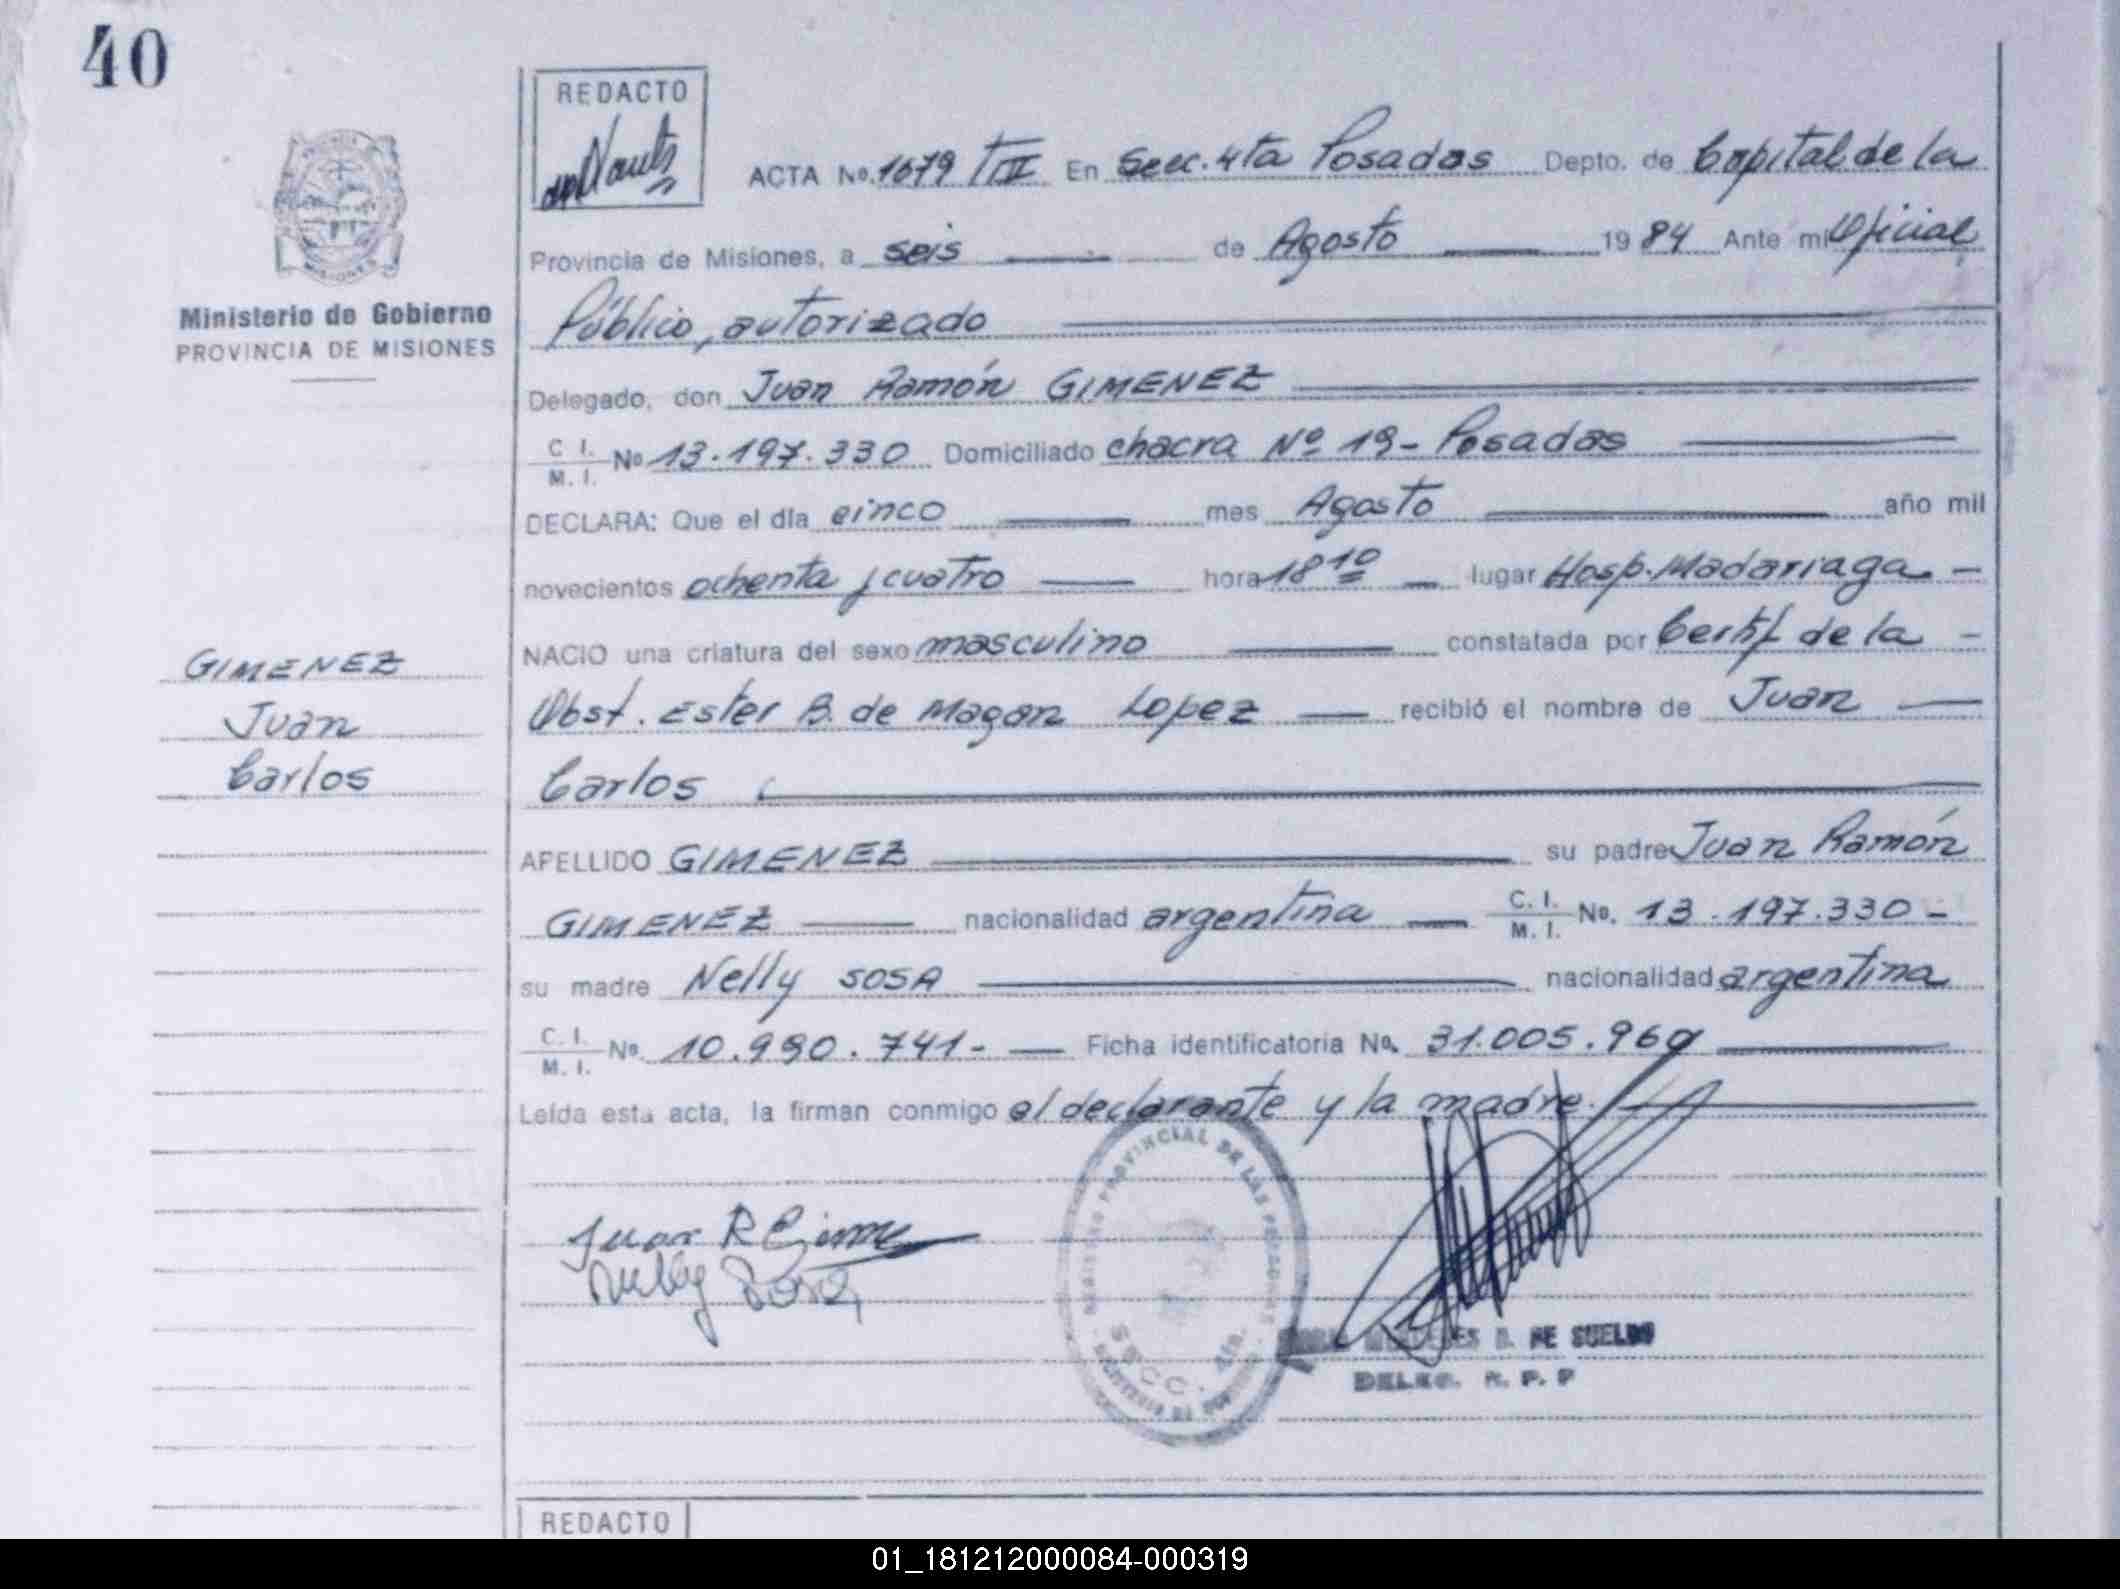 40
REDACTO
ACTA No. 1679 TIII En Secc. 4ta Posadas Depto. de Capital de la
Provincia de Misiones, a seis de Agosto 1984 Ante mi Oficial
Público, autorizado
Ministerio de Gobierno
PROVINCIA DE MISIONES
Delegado, don Juan Ramón GIMENEZ
C. I. M. I. No 13.197.330 Domiciliado chacra Nº 19 - Posadas
DECLARA: Que el día cinco mes Agosto año mil
novecientos ochenta y cuatro hora 18 10 lugar Hosp. Madariaga -
NACIO una criatura del sexo masculino constatada por Certif. de la -
Obst. Ester B. de Magan Lopez recibió el nombre de Juan
Carlos
GIMENEZ
Juan
Carlos
APELLIDO GIMENEZ su padre Juan Ramón
GIMENEZ nacionalidad argentina C. I. M. I. No. 13.197.330 -
su madre Nelly SOSA nacionalidad argentina
C. I. M. I. No. 10.990.741 - Ficha identificatoria No. 31.005.969
Leída esta acta, la firman conmigo el declarante y la madre.
Juan R Gimenez
Nelly Sosa
REGISTRO PROVINCIAL DE LAS PERSONAS
SECC. 4ta.
D. DE SUELDO
DELEG. R. P. P
REDACTO
01_181212000084-000319